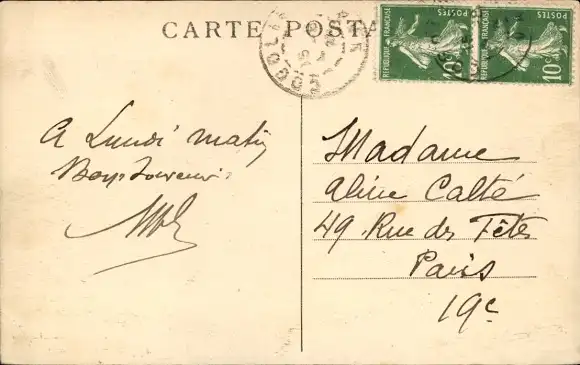 CARTE POSTA
POSTES
REPUBLIQUE FRANÇAISE
10c
POSTES
REPUBLIQUE FRANÇAISE
10c
A Lundi matin
Bons Souvenirs
Madame
Aline Calté
49 Rue des Fêtes
Paris
19e